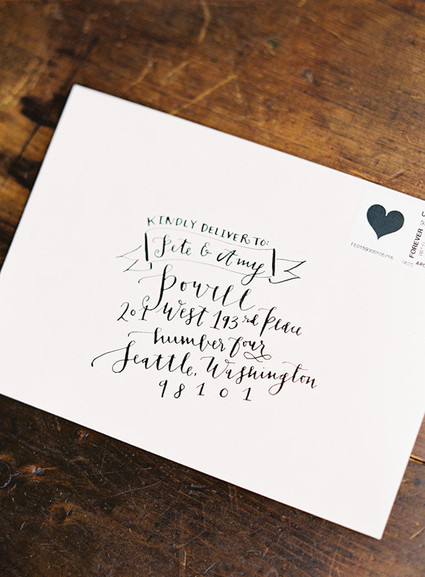 KINDLY DELIVER TO:
Pete & Amy
Powell
201 West 193rd Place
number four
Seattle, Washington
98101
FOREVER